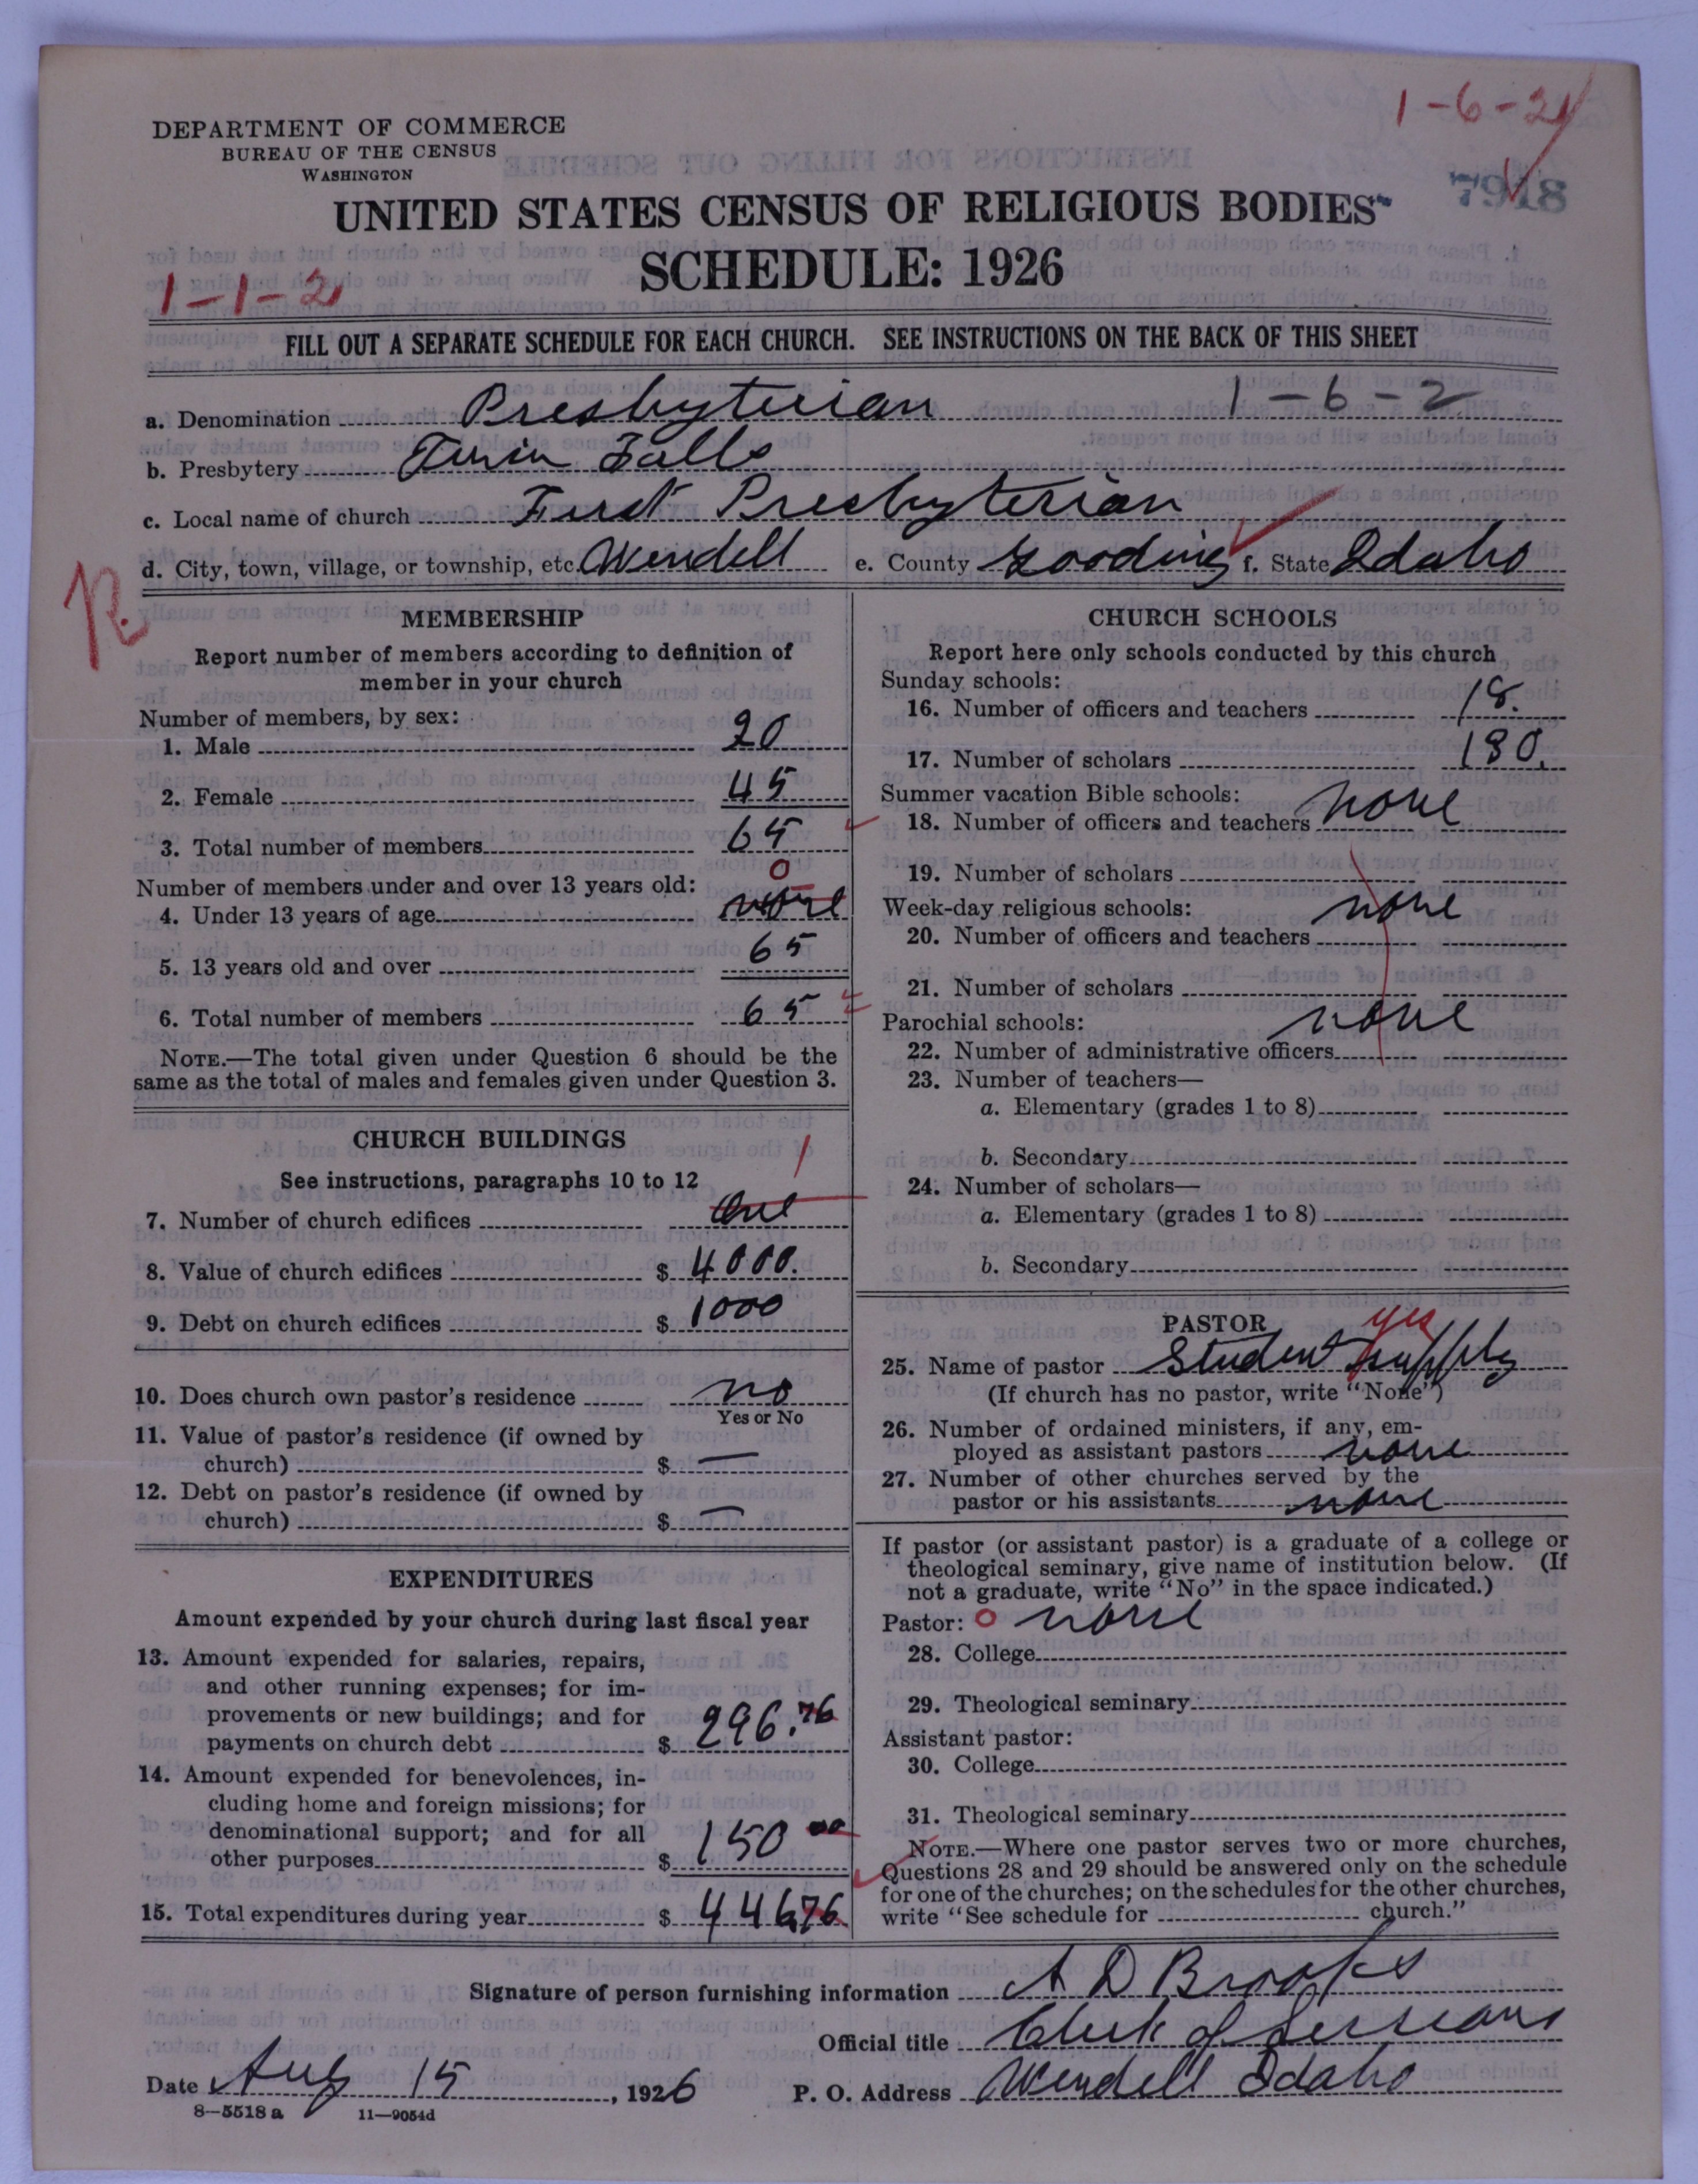 1-6-2
7918
DEPARTMENT OF COMMERCE
BUREAU OF THE CENSUS
WASHINGTON
UNITED STATES CENSUS OF RELIGIOUS BODIES
SCHEDULE: 1926
1-1-2
FILL OUT A SEPARATE SCHEDULE FOR EACH CHURCH. SEE INSTRUCTIONS ON THE BACK OF THIS SHEET
a. Denomination Presbyterian 1-6-2
b. Presbytery Twin Falls
c. Local name of church First Presbyterian
d. City, town, village, or township, etc. Wendell e. County Gooding f. State Idaho
R.
MEMBERSHIP
Report number of members according to definition of
member in your church
Number of members, by sex:
1. Male 20
2. Female 45
3. Total number of members 65
Number of members under and over 13 years old: 0
4. Under 13 years of age none
5. 13 years old and over 65
6. Total number of members 65
NOTE.—The total given under Question 6 should be the
same as the total of males and females given under Question 3.
CHURCH BUILDINGS
See instructions, paragraphs 10 to 12 1
7. Number of church edifices One
8. Value of church edifices $ 4000.
9. Debt on church edifices $ 1000
10. Does church own pastor's residence no
Yes or No
11. Value of pastor's residence (if owned by
church) $ —
12. Debt on pastor's residence (if owned by
church) $ —
EXPENDITURES
Amount expended by your church during last fiscal year
13. Amount expended for salaries, repairs,
and other running expenses; for im-
provements or new buildings; and for
payments on church debt $ 296.76
14. Amount expended for benevolences, in-
cluding home and foreign missions; for
denominational support; and for all
other purposes $ 150 00
15. Total expenditures during year $ 446.76
CHURCH SCHOOLS
Report here only schools conducted by this church
Sunday schools:
16. Number of officers and teachers 18.
17. Number of scholars 180.
Summer vacation Bible schools:
18. Number of officers and teachers none
19. Number of scholars
Week-day religious schools:
20. Number of officers and teachers none
21. Number of scholars
Parochial schools:
22. Number of administrative officers none
23. Number of teachers—
a. Elementary (grades 1 to 8)
b. Secondary
24. Number of scholars—
a. Elementary (grades 1 to 8)
b. Secondary
PASTOR yes
25. Name of pastor Student Supply
(If church has no pastor, write "None")
26. Number of ordained ministers, if any, em-
ployed as assistant pastors none
27. Number of other churches served by the
pastor or his assistants none
If pastor (or assistant pastor) is a graduate of a college or
theological seminary, give name of institution below. (If
not a graduate, write "No" in the space indicated.)
Pastor: 0 none
28. College
29. Theological seminary
Assistant pastor:
30. College
31. Theological seminary
NOTE.—Where one pastor serves two or more churches,
Questions 28 and 29 should be answered only on the schedule
for one of the churches; on the schedules for the other churches,
write "See schedule for church."
Signature of person furnishing information A D Brooks
Official title Clerk of Sessions
Date Aug 15, 1926 P. O. Address Wendell Idaho
8—5518 a 11—9054d